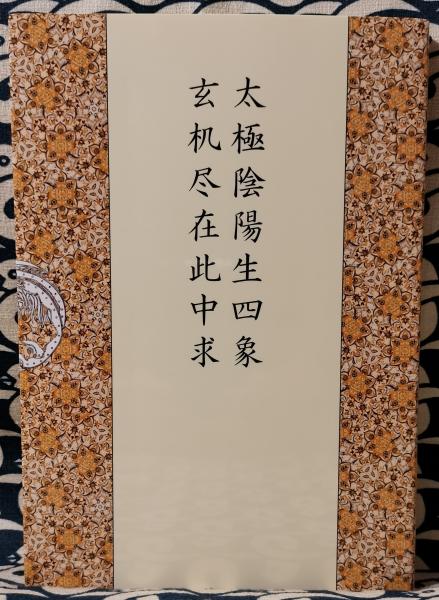 太極陰陽生四象
玄机尽在此中求